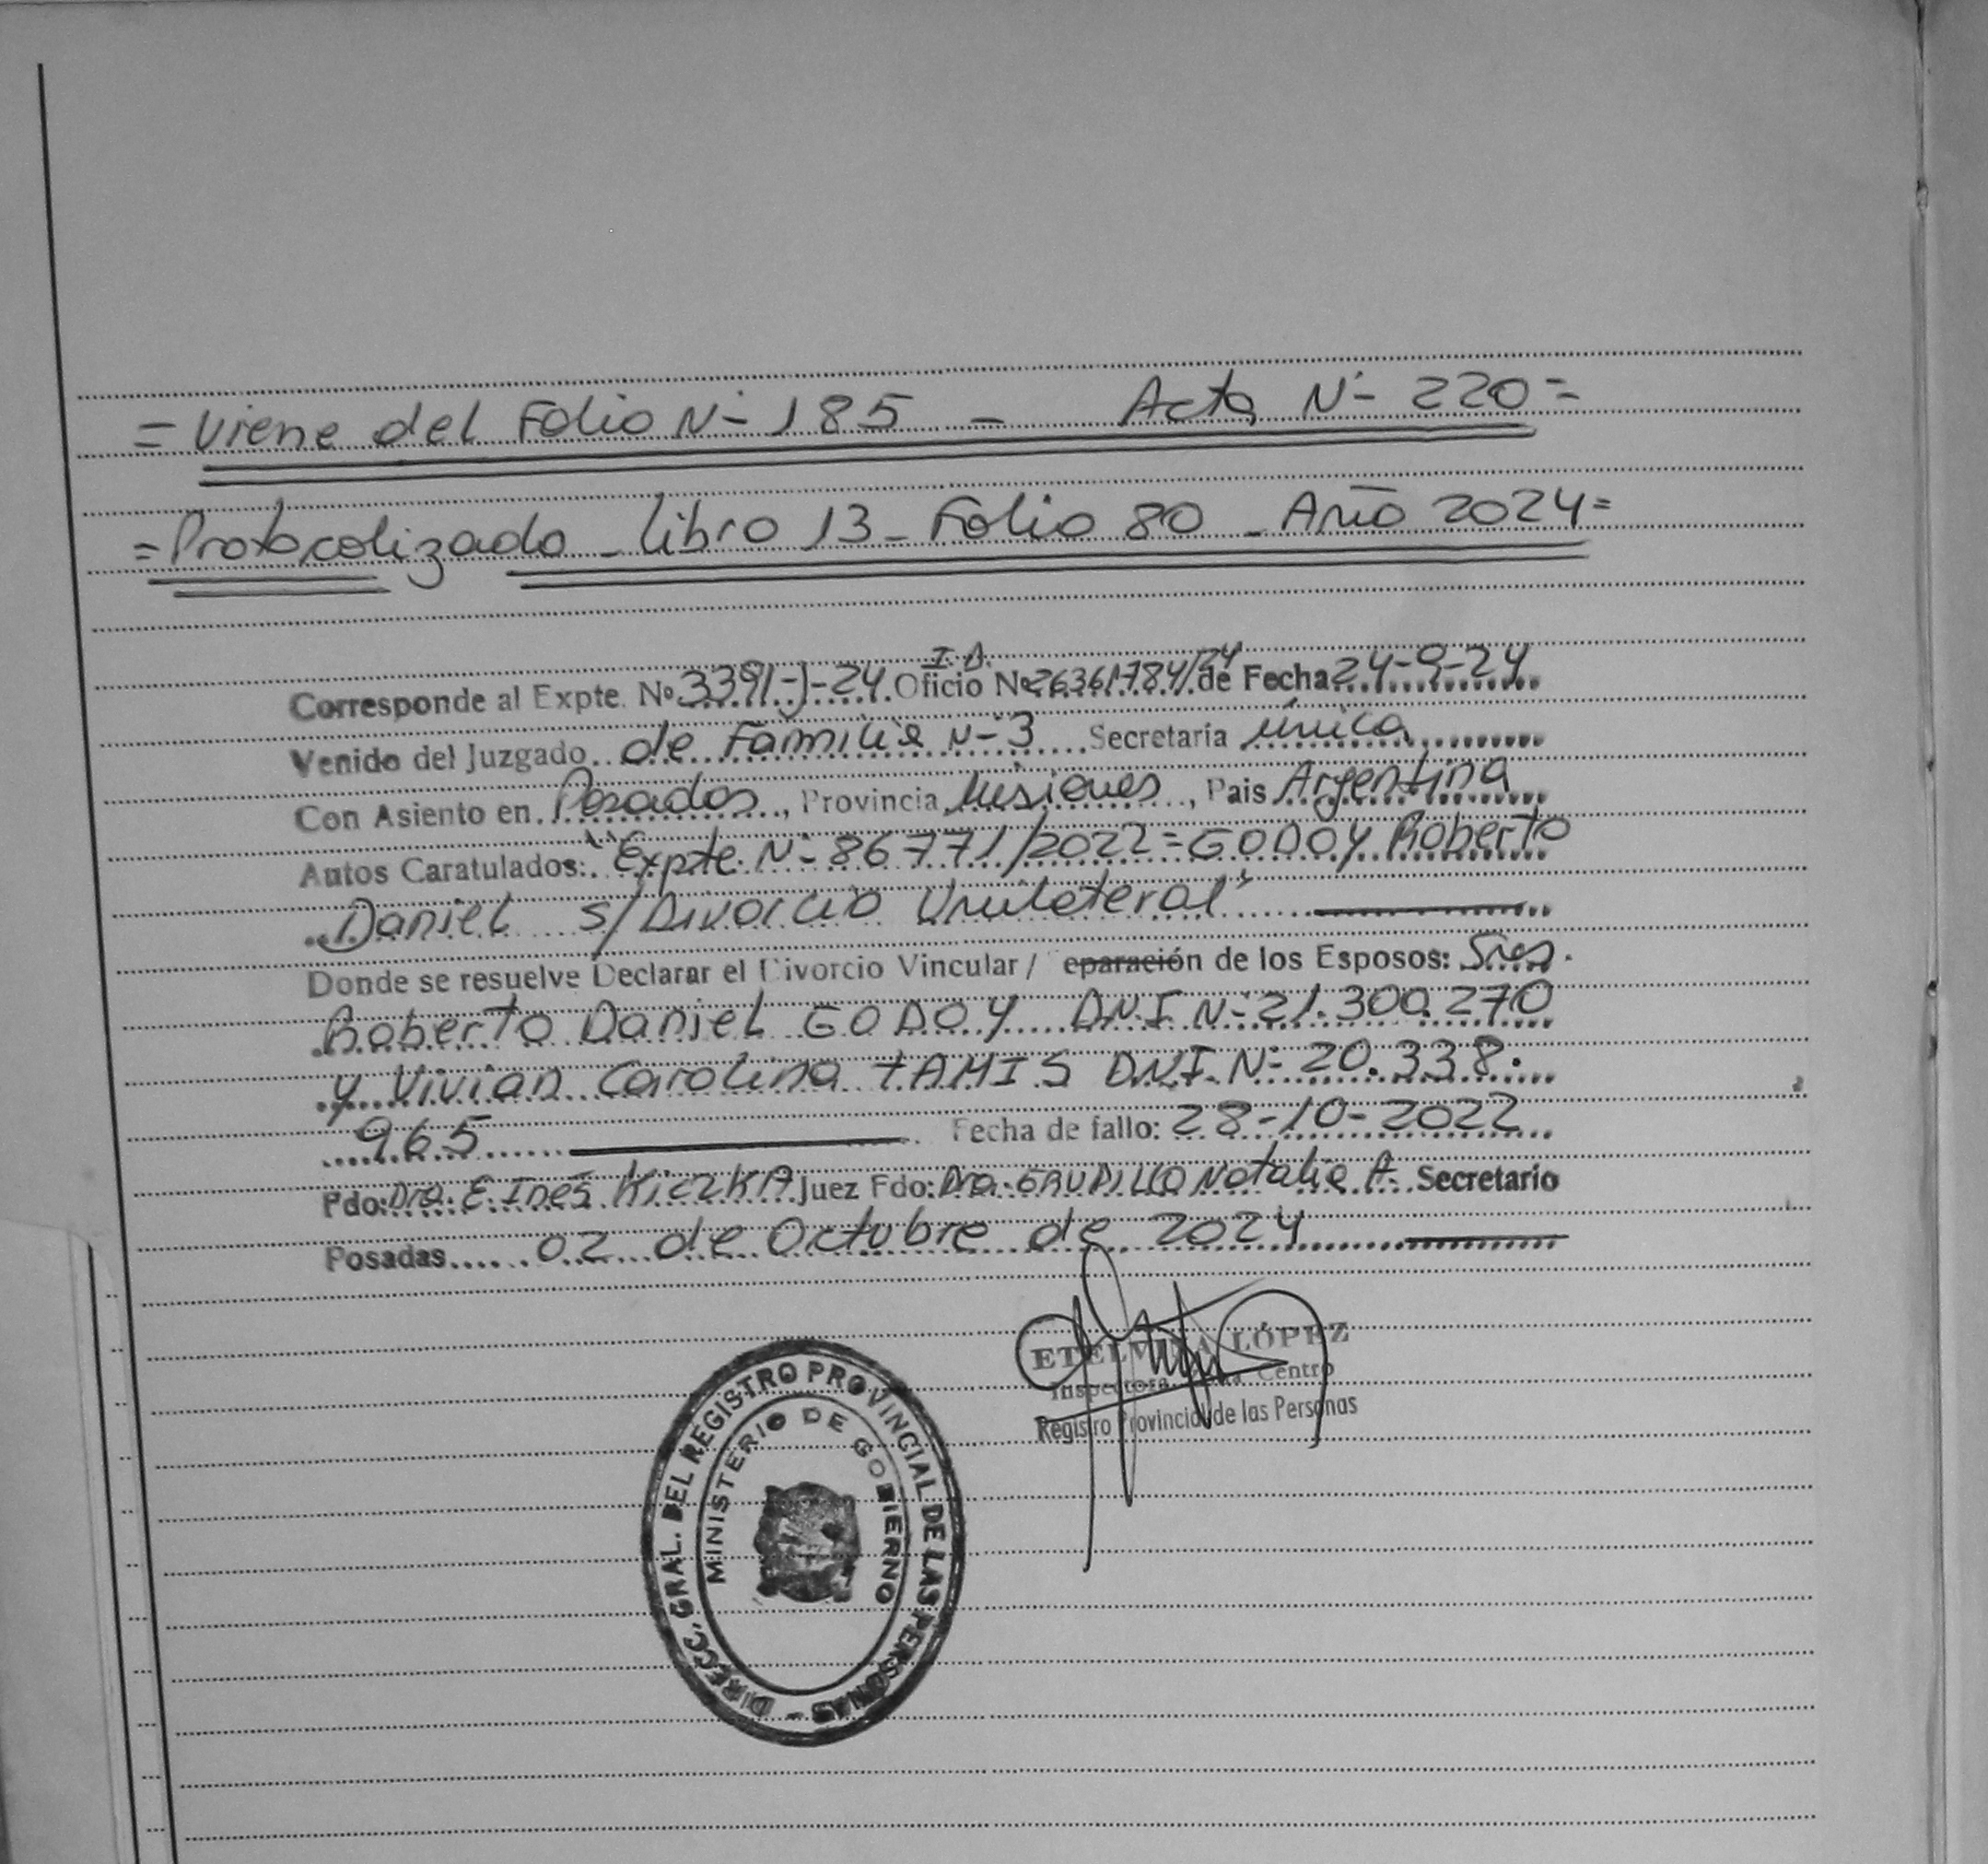 = Viene del Folio N- 185 - Acta N- 220 =
= Protocolizado - Libro 13 - Folio 80 - Año 2024 =
I.D.
Corresponde al Expte. Nº 3391-J-24. Oficio Nº 26361784/24 de Fecha 24-9-24
Venido del Juzgado de Familia N-3 Secretaría única
Con Asiento en Posadas, Provincia Misiones, Pais Argentina
Autos Caratulados: "Expte. N- 86771/2022 = GODOY Roberto
Daniel s/ Divorcio Unilateral"
Donde se resuelve Declarar el Divorcio Vincular / eparación de los Esposos: Sres.
Roberto Daniel GODOY D.N.I. N- 21.300.270
y Vivian Carolina TAMIS D.N.I. N- 20.338.
965 Fecha de fallo: 28-10-2022
Fdo: Dra. E. Inés KICZKA Juez Fdo: Dra. Natalia A. Secretario
Posadas 02 de Octubre de 2024
ETELVINA LÓPEZ
Inspectora Centro
Registro Provincial de las Personas
DIRECC. GRAL. DEL REGISTRO PROVINCIAL DE LAS PERSONAS -
MINISTERIO DE GOBIERNO